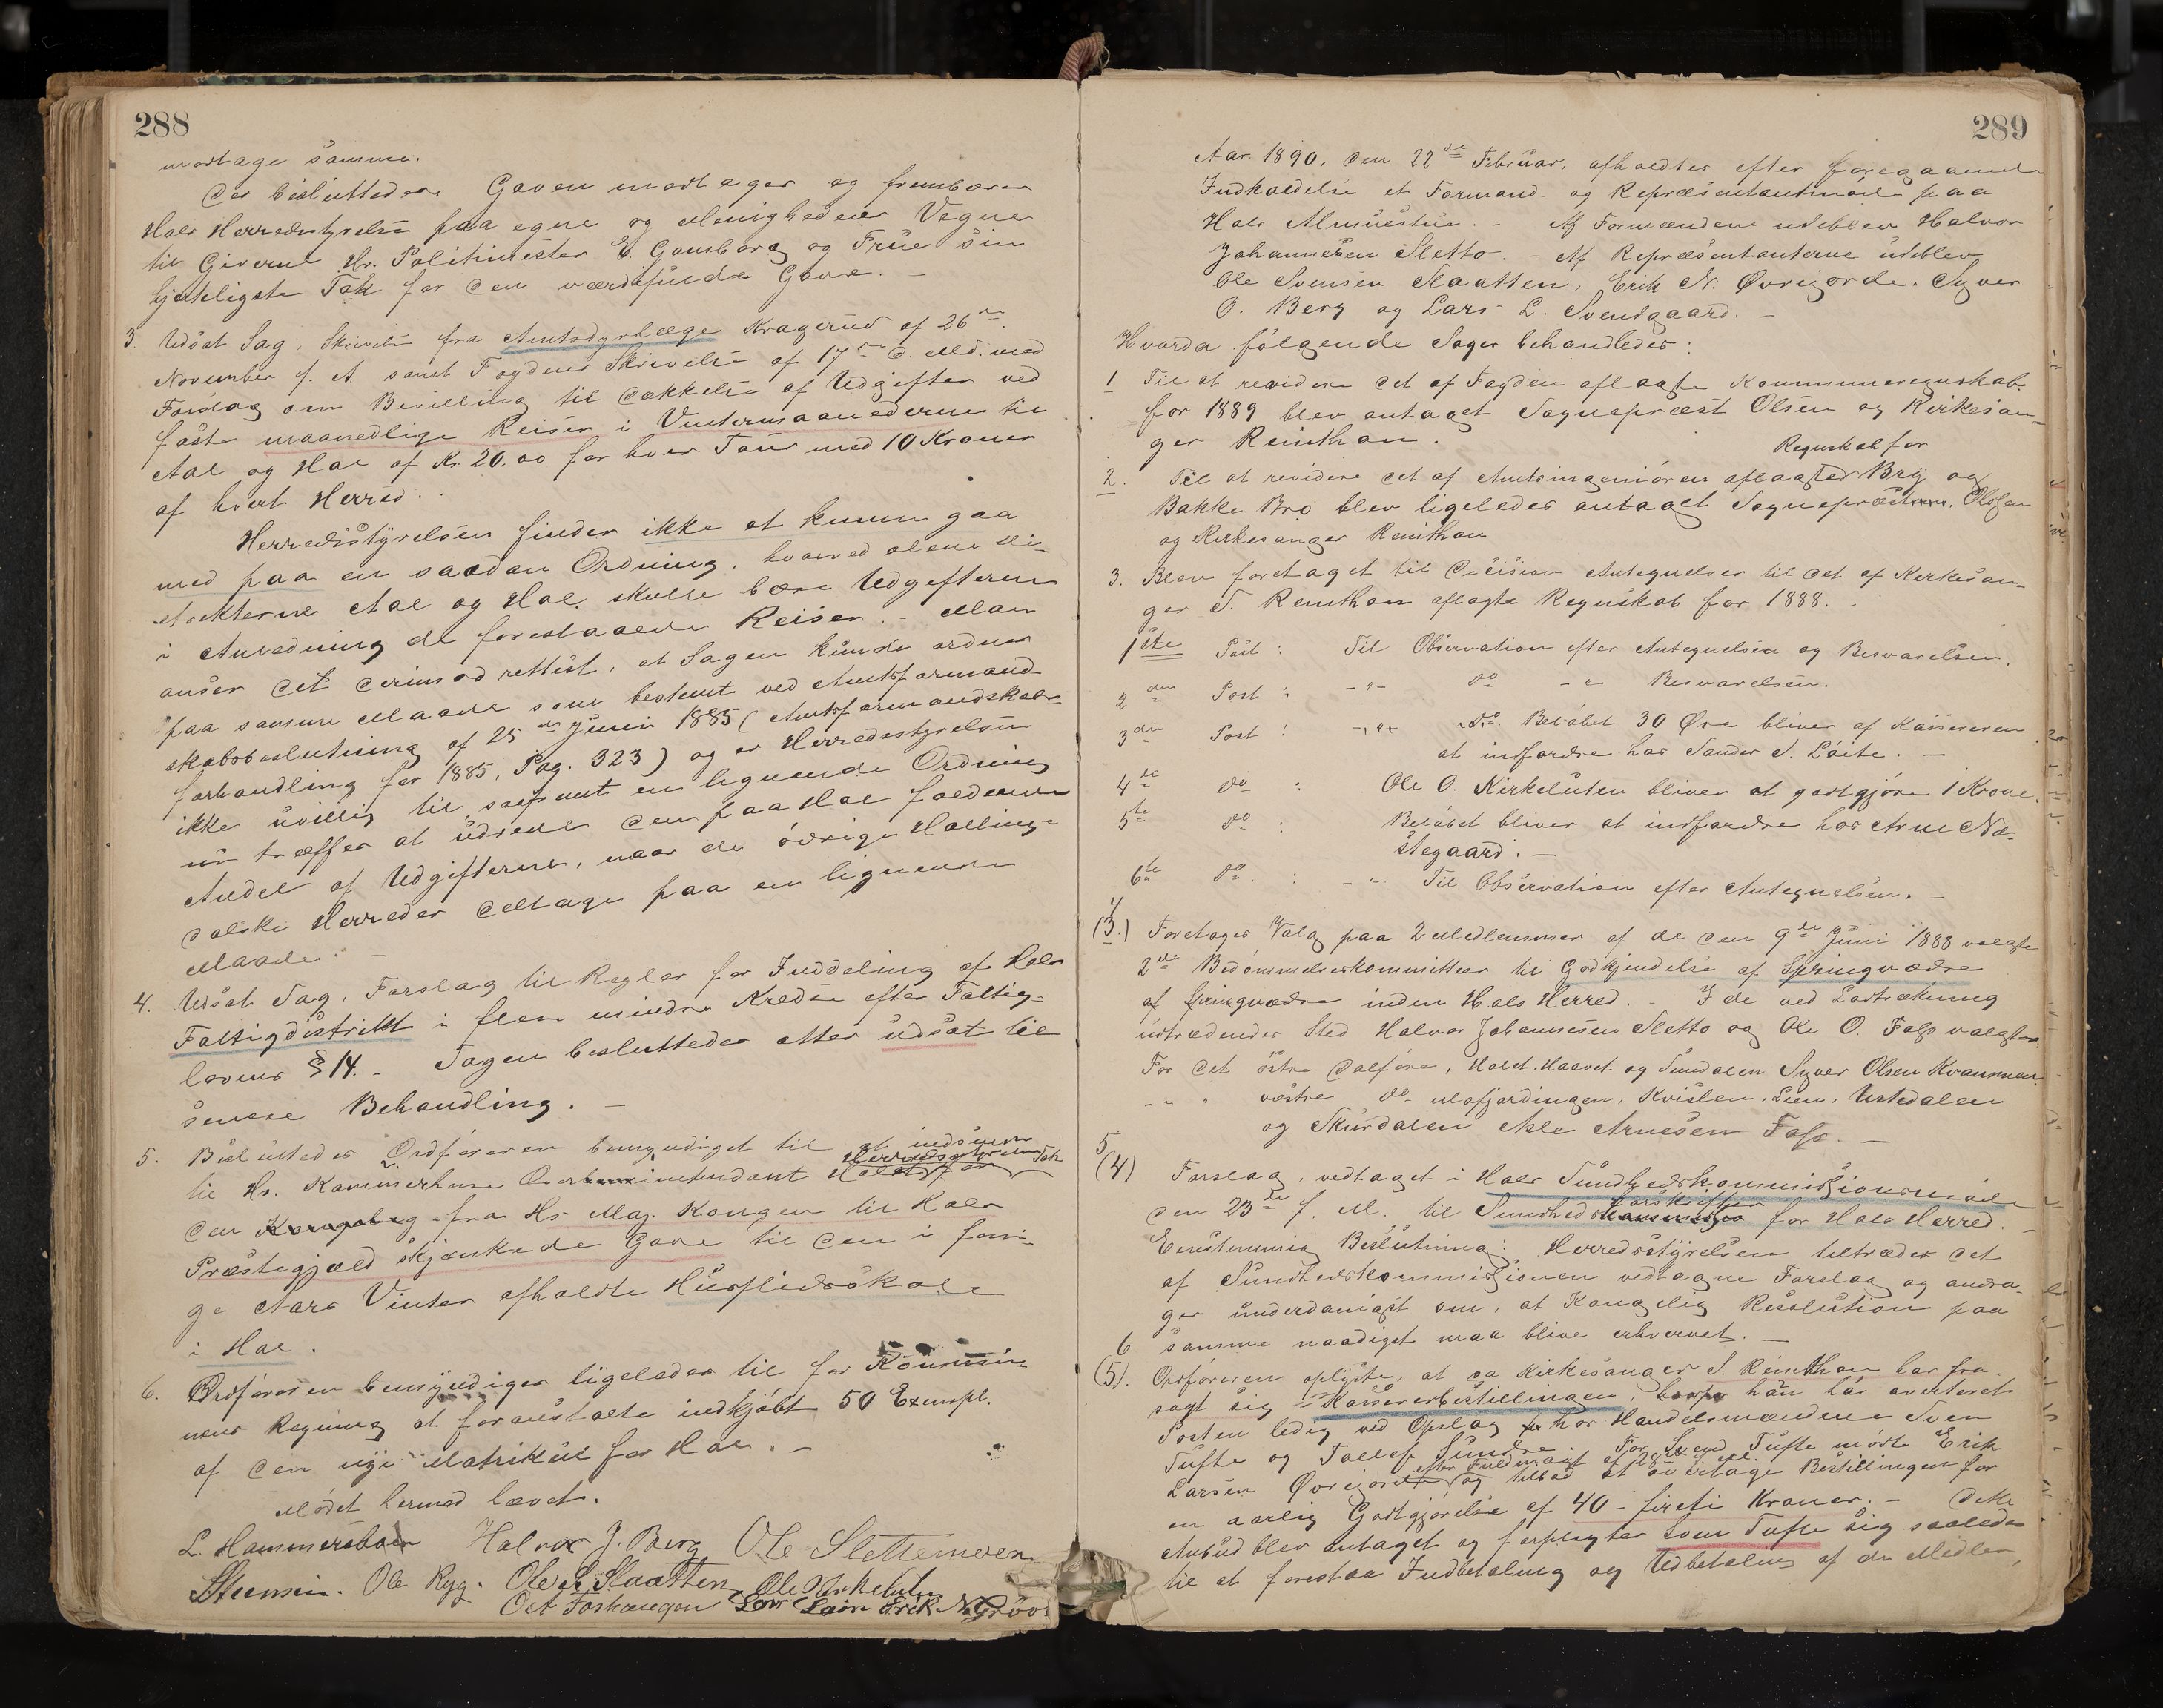 288
modtage samme.
Der besluttedes: Gaven modtages og frembærer
Hols Herredsstyrelse paa egne og Menighedens Vegne
til Giverne Hr. Politimester E. Gamborg og Frue sin
hjerteligste Tak for den værdifulde Gave. —
3. Udsat Sag. Skrivelse fra Amtsdyrlæge Kragerud af 26de
November f. A. samt Fogdens Skrivelse af 17de d. Md. med
Forslag om Bevilling til Dækkelse af Udgifter ved
faste maanedlige Reiser i Vintermaanederne til
Aal og Hol af Kr. 20.00 for hver Tour med 10 Kroner
af hvert Herred.
Herredsstyrelsen finder ikke at kunne gaa
med paa en saadan Ordning, hvorved alene Di-
strikterne Aal og Hol skulle bære Udgifterne
i Anledning de foreslaaede Reiser. – Man
anser det derimod rettest, at Sagen kunde ordnes
paa samme Maade som bestemt ved Amtsformand-
skabsbeslutning af 25de Juni 1885 (Amtsformandskabs-
forhandling for 1885, Pag. 323) og er Herredsstyrelsen
ikke uvillig til, saafremt en lignende Ordning
nu træffes at udrede den paa Hol faldende
Andel af Udgifterne, naar de øvrige Halling-
dalske Herreder deltage paa en lignende
Maade. —
4. Udsat Sag. Forslag til Regler for Inddeling af Hols
Fattigdistrikt i flere mindre Kredse efter Fattig-
lovens § 14. – Sagen besluttedes atter udsat til
senere Behandling. —
5. Besluttedes Ordføreren bemyndiget til at indsende
Herredsstyrelsens Tak
til Hr. Kammerherre Overhofintendant Holst for
den fra Hs. Maj. Kongen til Hols
Præstegjæld skjænkede Gave til den i forri-
ge Aars Vinter afholdte Husflidsskole
i Hol.
6. Ordføreren bemyndiges ligeledes til for Kommu-
nens Regning at foranstalte indkjøbt 50 Exempl.
af den nye Matrikul for Hol. —
Mødet hermed hævet.
L. Hammersbøen Halvor J. Berg Ole Slettemoen
Steensen. Ole Ryg. Ole S. Slaatten Ole Kirkelutn
Lars Erik N.
289
Aar 1890, den 22de Februar, afholdtes efter foregaaende
Indkaldelse et Formand- og Repræsentantmøde paa
Hols Almuestue. – Af Formændene udeblev Halvor
Johannesen Sletto. – Af Repræsentanterne udeblev
Ole Svensen Slaatten, Erik N. Øvrejorde, Syver
O. Berg og Lars L. Svendgaard. –
Hvorda følgende Sager behandledes:
1 Til at revidere det af Fogden aflagte Kommuneregnskab
for 1889 blev antaget Sognepræst Olsen og Kirkesan-
ger Reinthon.
Regnskab for
2. Til at revidere det af Amtsingeniøren aflagte Bry og
Bakke Bro blev ligeledes antaget Sognepræst Olssen
og Kirkesanger Reinthon
3. Blev foretaget til Decision Antegnelser til det af Kirkesan-
ger S. Reinthon aflagte Regnskab for 1888.
1ste Post : Til Observation efter Antegnelsen og Besvarelsen.
2den Post : – " – do – " Besvarelsen.
3die Post : – " – do. Beløbet 30 Øre bliver af Kassereren
at indfordre hos Sander S. Løite. —
4de do : Ole O. Kirkeluten bliver at godtgjøre 1 Krone.
5te do : Beløbet bliver at indfordre hos Arne Næ-
stegaard. —
6te do. : – " Til Observation efter Antegnelsen. –
4
(3.) Foretages Valg paa 2 Medlemmer af de den 9de Juni 1888 valgte
2de Bedømmelseskommitteer til Godkjendelse af Springvædre
af Springvædre inden Hols Herred. – I de ved Lodtrækning
udtrædendes Sted Halvor Johannesen Sletto og Ole O. Foss valgtes.
For det østre Dalføre, Holet. Hovet og Sundalen Syver Olsen Kvannen.
– " – " vestre do Ustedalen
og Skurdalen Asle Arnesen Foss. —
5
(4) Forslag, vedtaget i Hols Sundhedskommissionsmøde
den 23de f. M. til Sundhedsforskrifter for Hols Herred. –
Eenstemmig Beslutning: Herredsstyrelsen tiltræder det
af Sundhedskommissionen vedtagne Forslag og andra-
ger underdanigst om, at Kongelig Resolution paa
samme naadigst maa blive erhvervet. —
6
(5). Ordføreren oplyste, at da Kirkesanger S. Reinthon har fra-
sagt sig Kassererbestillingen, han har averteret
Posten ledig ved Opslag hos Handelsmændene Sven
Tufte og Tollef Sundre. For Svend Tufte mødte Erik
efter Fuldmagt af 28de f. M.
Larsen Øvrejorde og tilbød at overtage Bestillingen for
en aarlig Godtgjørelse af 40 – firti Kroner. – Dette
Anbud blev antaget og forpligter Sven Tufte sig saaledes
til at forestaa Indbetaling og Udbetaling af de Midler,